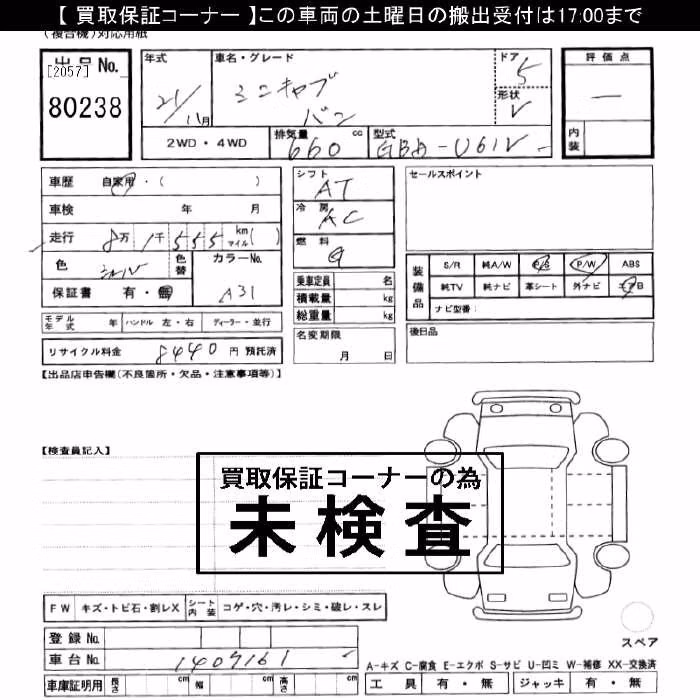 【 買取保証コーナー 】この車両の土曜日の搬出受付は17:00まで
(複合機)対応用紙
出品No.
[2057]
80238
年式 21/11月
車名・グレード ミニキャブ バン
ドア 5
形状 V
評価点 —
内装
2WD・4WD
排気量 660 cc
型式 EBA-U61V
車歴 自家用・( )
車検 年 月
走行 8万1千555 km マイル( )
色 シルバ 色替 カラーNo. A31
保証書 有・無
モデル年式 年 ハンドル 左・右 ディーラー・並行
リサイクル料金 8440 円 預託済
シフト AT
冷房 AC
燃料 G
乗車定員 名
積載量 kg
総重量 kg
名変期限 月 日
セールスポイント
装備品 S/R 純A/W P/S P/W ABS
純TV 純ナビ 革シート 外ナビ エアB
ナビ型番:
後日品
【出品店申告欄(不良箇所・欠品・注意事項等)】
【検査員記入】
買取保証コーナーの為
未検査
FW キズ・トビ石・割レX シート内装 コゲ・穴・汚レ・シミ・破レ・スレ
登録No.
車台No. 1409161
車庫証明用 長さ cm 幅 cm 高さ cm
スペア
A-キズ C-腐食 E-エクボ S-サビ U-凹ミ W-補修 XX-交換済
工具 有・無 ジャッキ 有・無